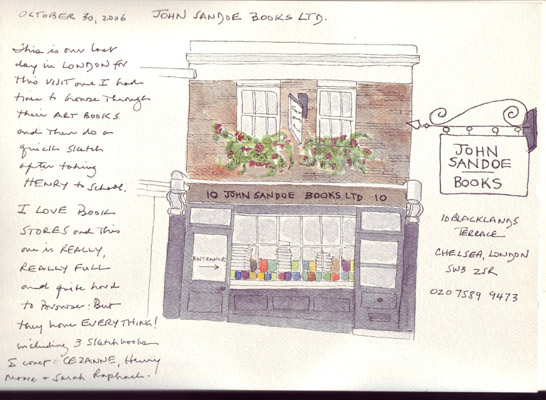 OCTOBER 30, 2006 JOHN SANDOE BOOKS LTD.
This is our last
day in LONDON for
this VISIT and I had
time to browse through
their ART BOOKS
and then do a
quick sketch
after taking
HENRY to School.
I LOVE BOOK
STORES and this
one is REALLY,
REALLY FULL
and quite hard
to browse: But
they have EVERYTHING!
including 3 Sketchbooks
I covet: CEZANNE, Henry
Moore + Sarah Raphael.
10 JOHN SANDOE BOOKS LTD 10
ENTRANCE
JOHN
SANDOE
BOOKS
10 BLACKLANDS
TERRACE
CHELSEA, LONDON
SW3 2SR
020 7589 9473